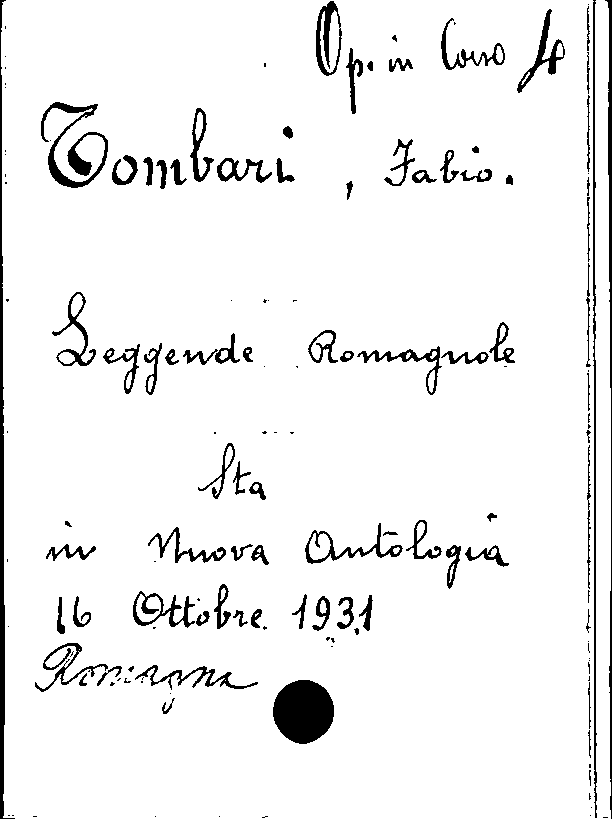 Op. in Corso 4
Tombari, Fabio.
Leggende Romagnole
Sta
in Nuova Antologia
16 Ottobre 1931
Romagna